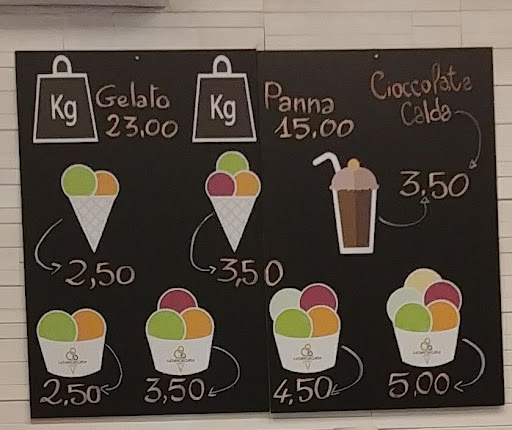 Kg Gelato
23,00
Kg Panna
15,00
Cioccolata
Calda
3,50
2,50
3,50
2,50
3,50
4,50
5,00